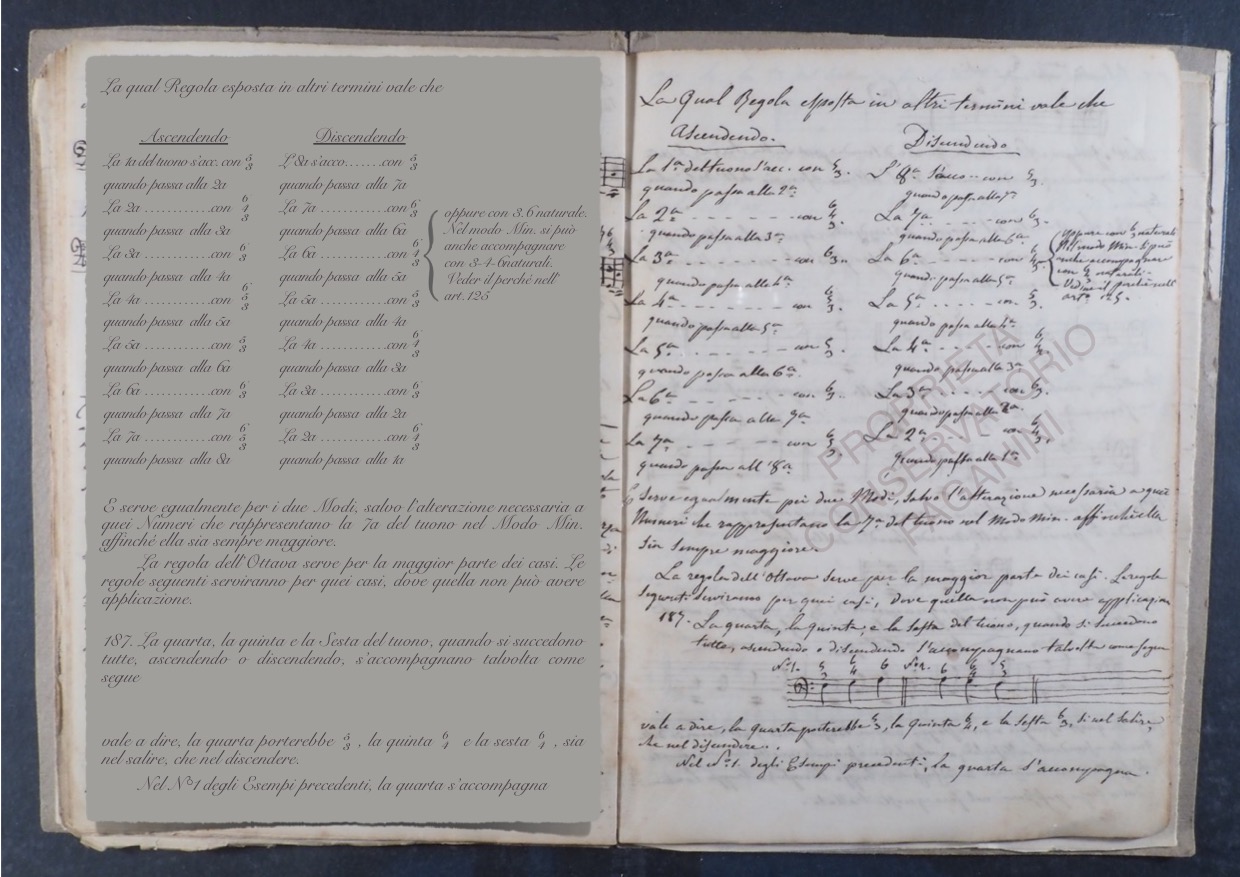 La qual Regola esposta in altri termini vale che
Ascendendo Discendendo
La 1a del tuono s'acc. con 5 3 L'8a s'acco.......con 5 3
quando passa alla 2a quando passa alla 7a
La 2a ............con 6 4 3 La 7a ............con 6 3
quando passa alla 3a quando passa alla 6a
La 3a ............con 6 3 La 6a ............con 6 4 3
quando passa alla 4a quando passa alla 5a
La 4a ............con 6 5 3 La 5a ............con 5 3
quando passa alla 5a quando passa alla 4a
La 5a ............con 5 3 La 4a ............con 6 4 3
quando passa alla 6a quando passa alla 3a
La 6a ............con 6 3 La 3a ............con 6 3
quando passa alla 7a quando passa alla 2a
La 7a ............con 6 5 3 La 2a ............con 6 4 3
quando passa alla 8a quando passa alla 1a
oppure con 3.6 naturale.
Nel modo Min. si può
anche accompagnare
con 3-4-6naturali.
Veder il perché nell'
art.125
E serve egualmente per i due Modi, salvo l'alterazione necessaria a
quei Numeri che rappresentano la 7a del tuono nel Modo Min.
affinché ella sia sempre maggiore.
La regola dell'Ottava serve per la maggior parte dei casi. Le
regole seguenti serviranno per quei casi, dove quella non può avere
applicazione.
187. La quarta, la quinta e la Sesta del tuono, quando si succedono
tutte, ascendendo o discendendo, s'accompagnano talvolta come
segue
vale a dire, la quarta porterebbe 5 3 , la quinta 6 4 e la sesta 6 4 , sia
nel salire, che nel discendere.
Nel Nº1 degli Esempi precedenti, la quarta s'accompagna
La Qual Regola esposta in altri termini vale che
Ascendendo. Discendendo
La 1a del tuono s'acc. con 5 3. L'8a s'acco.. con 5 3.
quando passa alla 2a. quando passa alla 7a
La 2a - - - - - con 6 4 3 La 7a - - - - con 6 3.
quando passa alla 3a. quando passa alla 6a.
La 3a - - - - con 6 3.. La 6a - - - - con 6 4 3
quando passa alla 4a. quando passa alla 5a.
La 4a - - - - con 6 5 3. La 5a ..... con 5 3.
quando passa alla 5a. quando passa alla 4a.
La 5a - - - - con 5 3. La 4a ..... con 6 4 3.
quando passa alla 6a. quando passa alla 3a.
La 6a - - - - con 6 3. La 3a ..... con 6 3
quando passa alla 7a. quando passa alla 2a.
La 7a - - - - con 6 5 3 La 2a - - con 6 4 3.
quando passa all'8a. quando passa alla 1a.
oppure con naturale
Nel modo Min. si può
anche accompagnare
con naturali.
Vedi il perchè nell'
arto. 125.
E serve egualmente pei due Modi, salvo l'alterazione necessaria a quei
Numeri che rappresentano la 7a. del tuono nel Modo Min. affinchè ella
sia sempre maggiore.
La regola dell'Ottava serve per la maggior parte dei casi. Le regole
seguenti serviranno per quei casi, dove quella non può avere applicazion
187. La quarta, la quinta, e la sesta del tuono, quando si succedono
tutte, ascendendo o discendendo s'accompagnano talvolta come segue
No.1. 5 3 6 4 6 No.2. 6 6 4 5 3
vale a dire, la quarta porterebbe 5 3, la quinta 6 4, e la sesta 6 3, sì nel salire,
che nel discendere..
Nel No.1. degli Esempi precedenti, la quarta s'accompagna.
PROPRIETÀ
CONSERVATORIO
PAGANINI